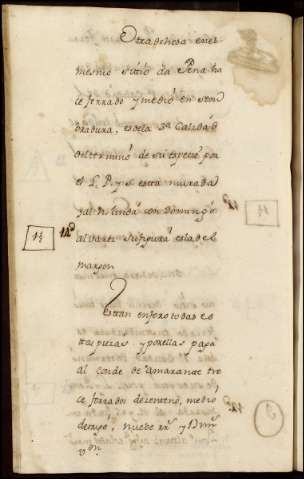 Otra dehesa en el
mesmo sitio da Pena ha
ce ferrado y medio en sem
bradura, es de la 3ª Calidad
del termino de su especie por
el L. P. y S. esta murada
y al N. linda con Domingo
alvarez su figura es la del
margen
Estan en foro todas es
tas piezas y por ellas paga
al Conde de amarante tre
ce ferrados de centeno, medio
de trigo, nuebe rr.s y 17 mrs
von
14
14